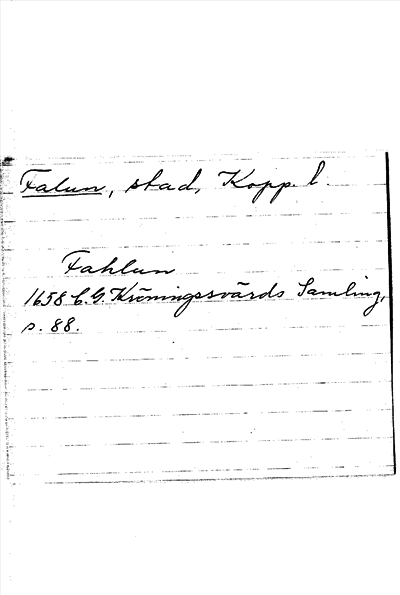 Falun, stad, Kopp. l.
Fahlun
1658 C. G. Kröningssvärds Samling,
s. 88.